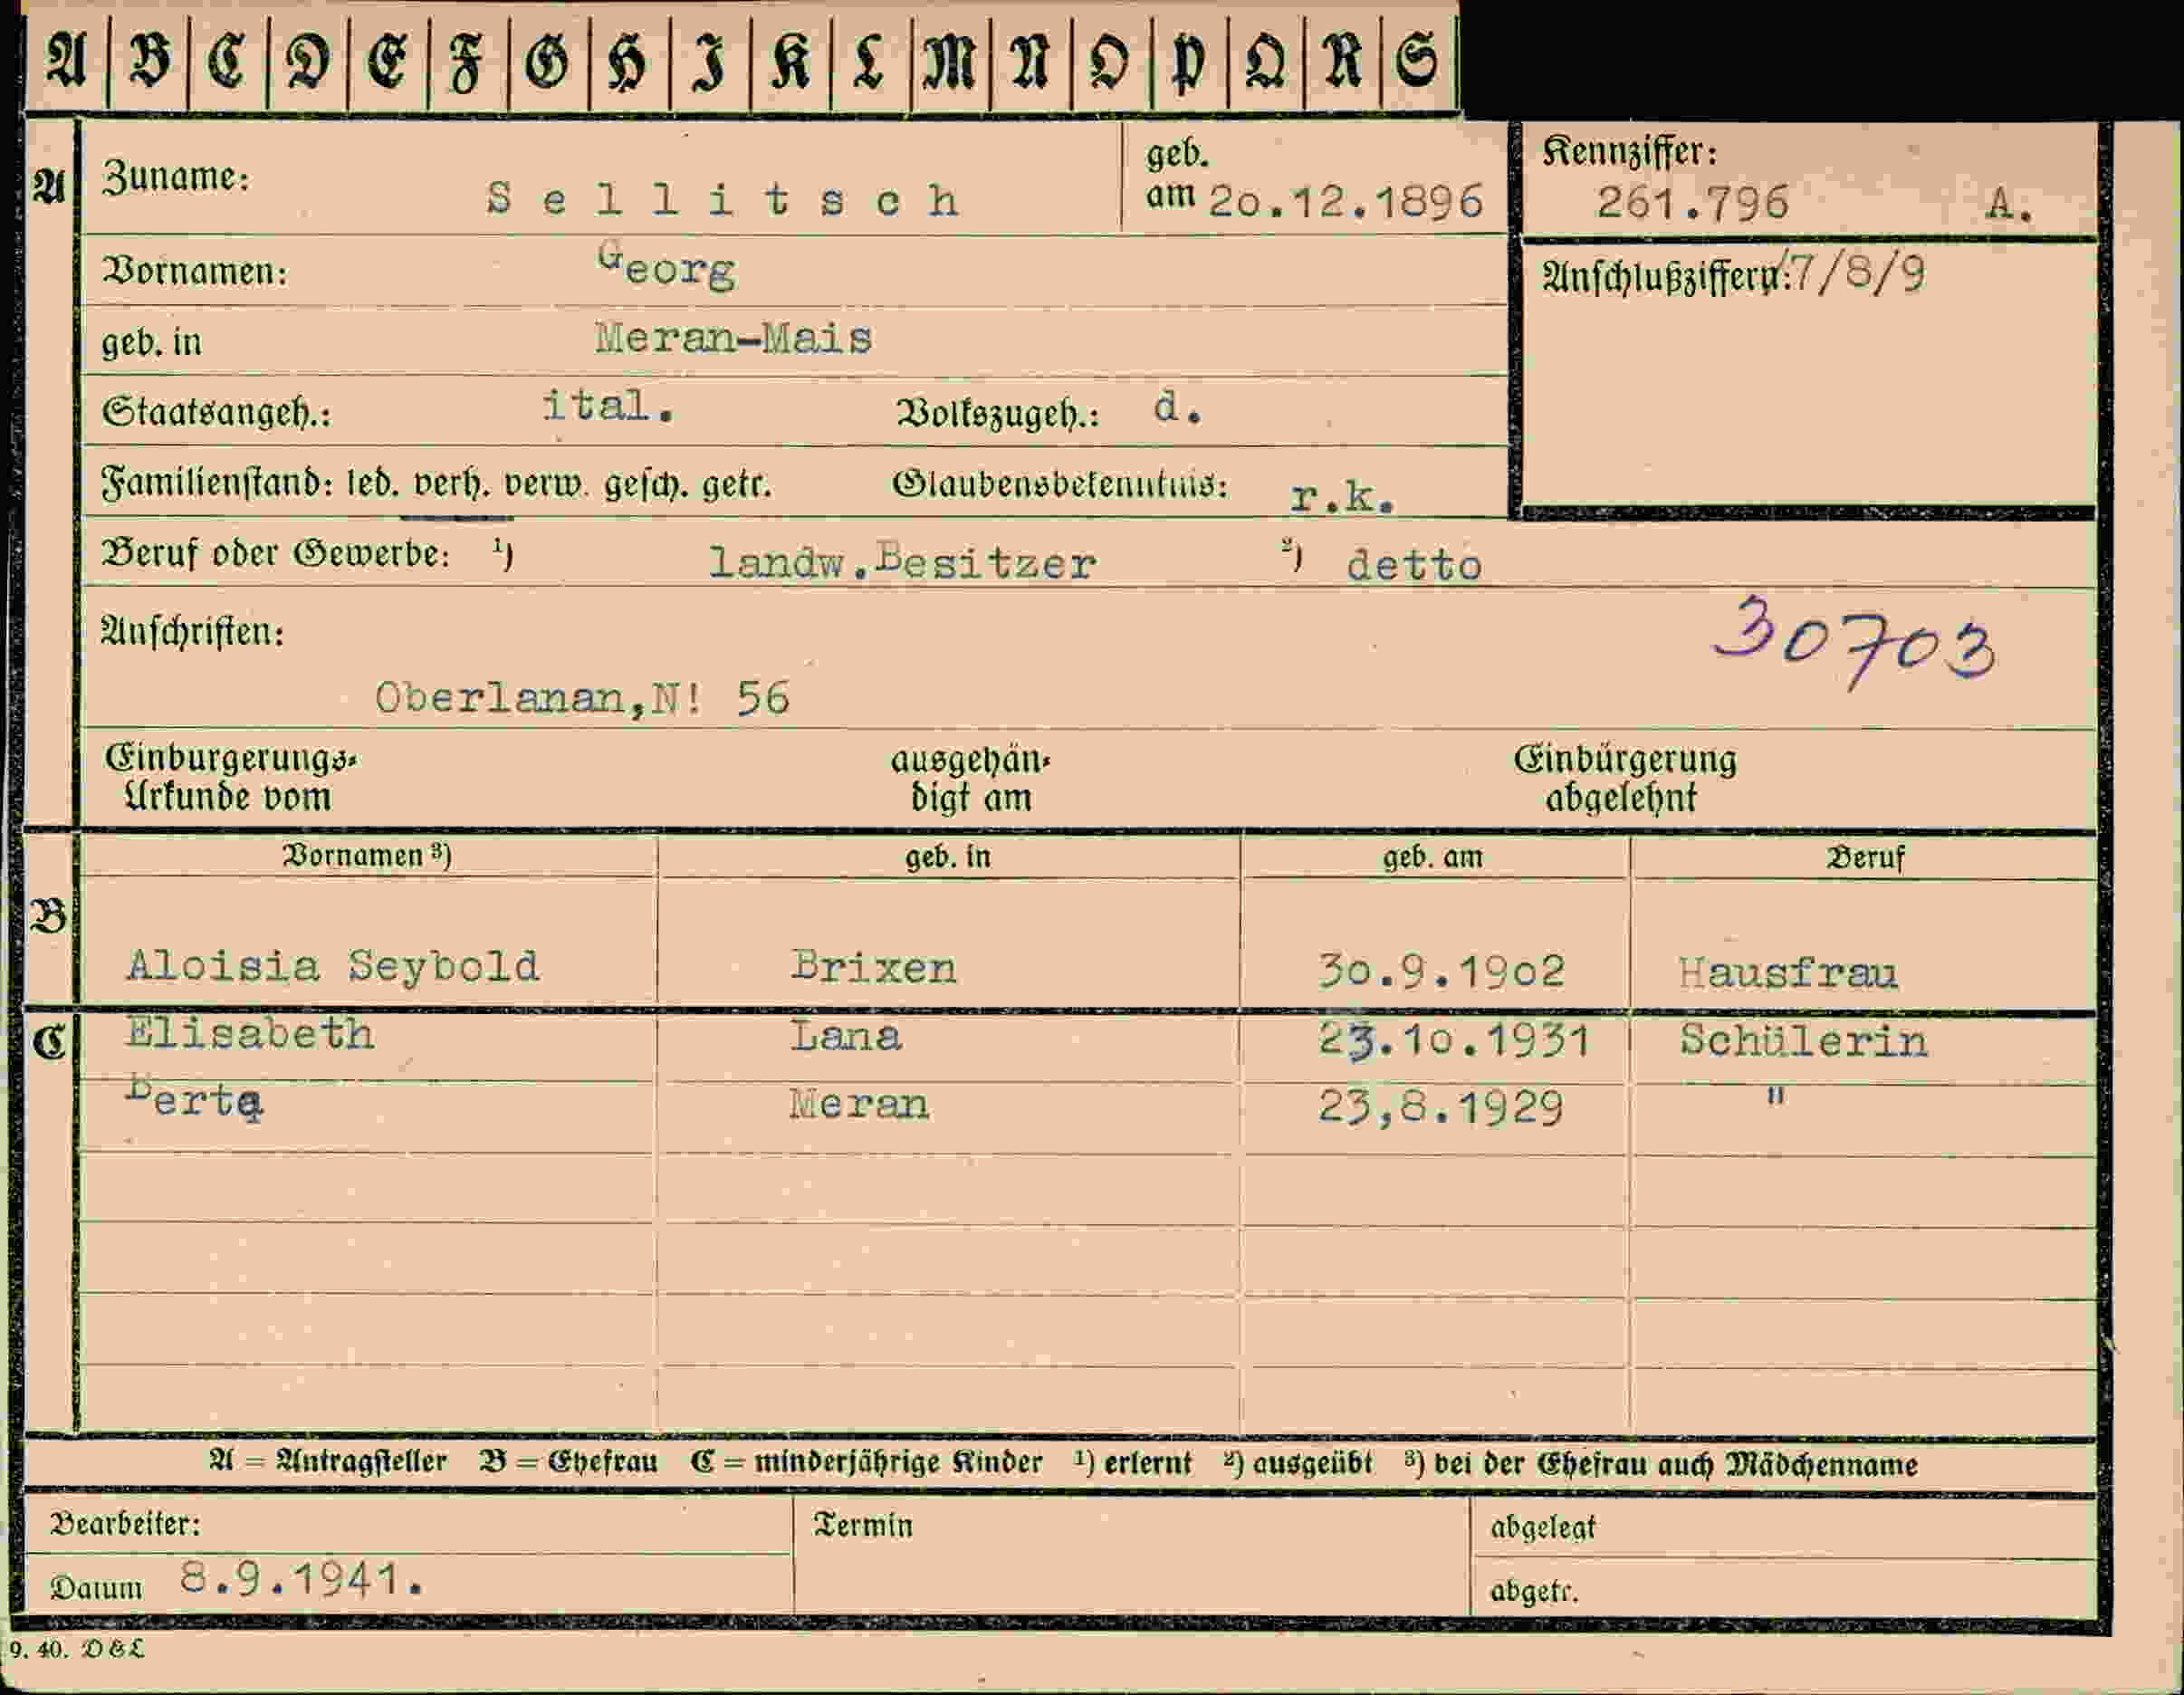 A B C D E F G H I K L M N O P Q R S
A Zuname: Sellitsch geb. am 2o.12.1896 Kennziffer: 261.796 A.
Vornamen: Georg Anschlußziffern:/7/8/9
geb. in Meran-Mais
Staatsangeh.: ital. Volkszugeh.: d.
Familienstand: led. verh. verw. gesch. getr. Glaubensbekenntnis: r.k.
Beruf oder Gewerbe: ¹) landw.Besitzer ²) detto
Anschriften: 30703
Oberlanan,N! 56
Einbürgerungs- ausgehän- Einbürgerung
Urkunde vom digt am abgelehnt
Vornamen ³) geb. in geb. am Beruf
B
Aloisia Seybold Brixen 3o.9.19o2 Hausfrau
C Elisabeth Lana 23.1o.1931 Schülerin
Berta Meran 23,8.1929 "
A = Antragsteller B = Ehefrau C = minderjährige Kinder ¹) erlernt ²) ausgeübt ³) bei der Ehefrau auch Mädchenname
Bearbeiter: Termin abgelegt
Datum 8.9.1941. abgetr.
9. 40. D & L